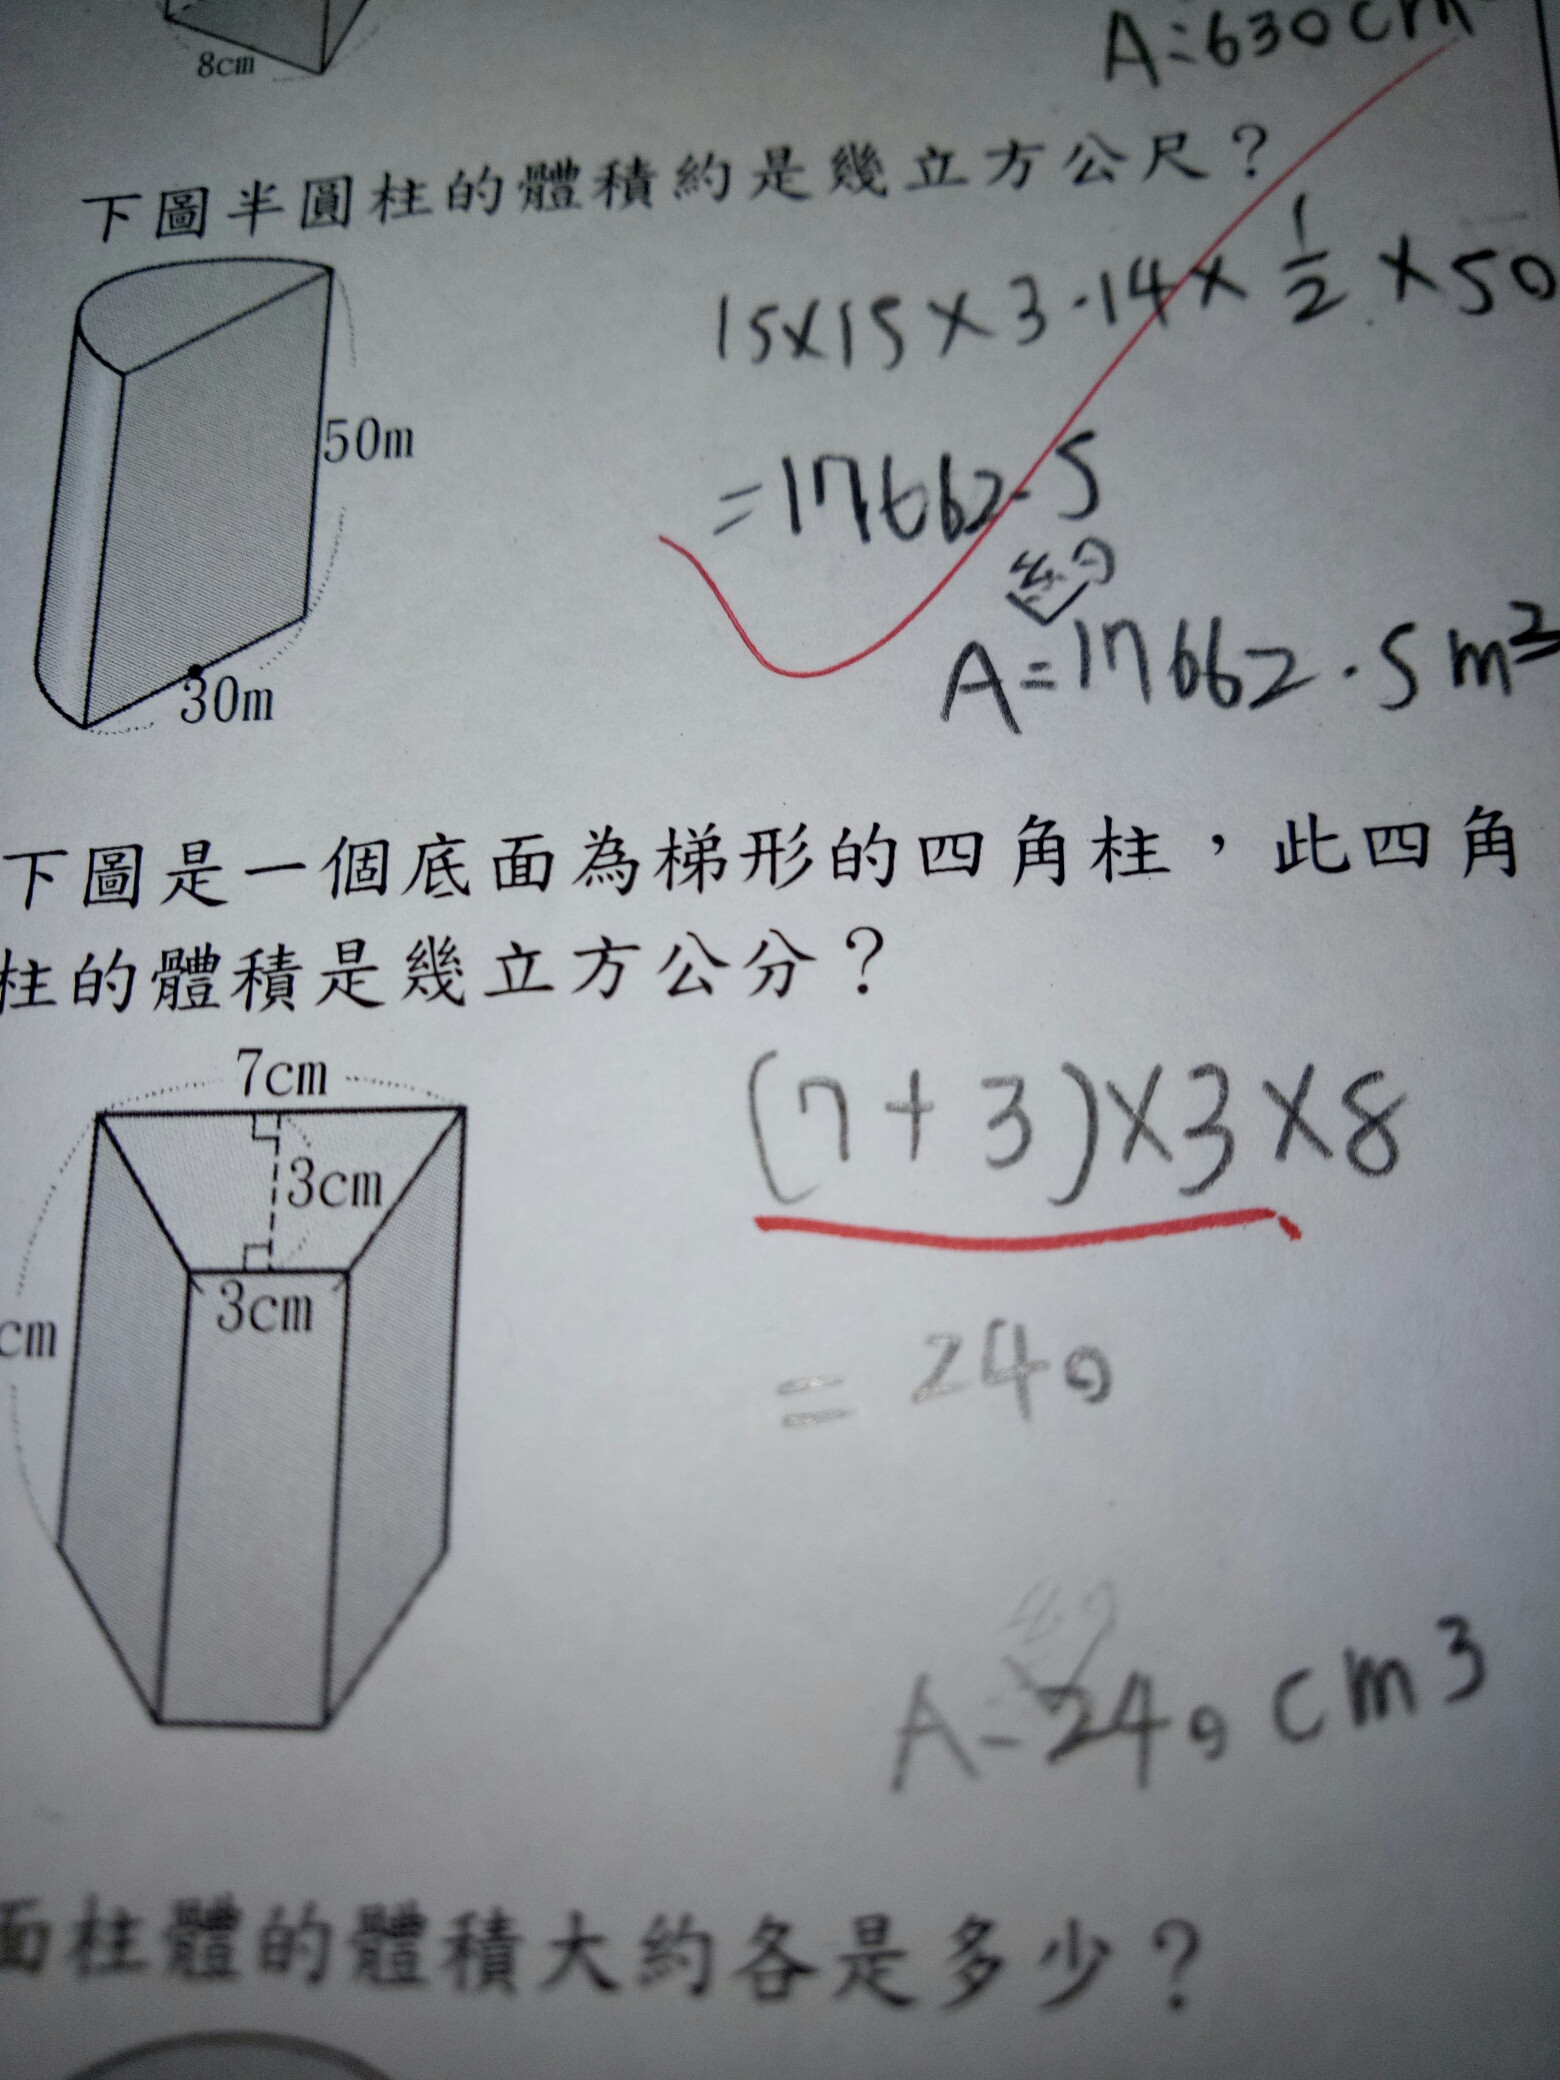 8cm
A:630cm
下圖半圓柱的體積約是幾立方公尺？
15×15×3.14×1/2×50
50m
=17662.5
約
A=17662.5m³
30m
下圖是一個底面為梯形的四角柱，此四角
柱的體積是幾立方公分？
7cm
(7+3)×3×8
3cm
3cm
cm
=240
約
A=240cm3
面柱體的體積大約各是多少？